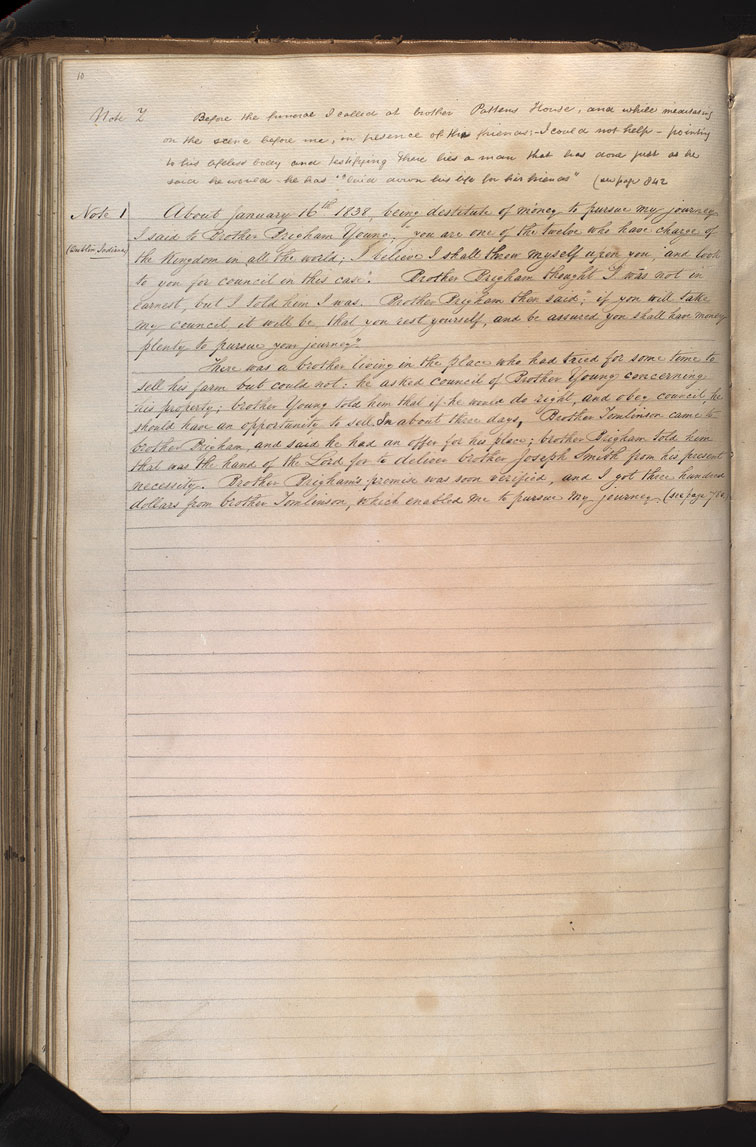 10
Note Z Before the funeral I called at brother Pattens House, and while meditating
on the scene before me, in presence of the friends:- I could not help - pointing
to his lifeless body and testifying there lies a man that has done just as he
said he would - he has "laid down his life for his friends" (see page 842
Note 1 About January 16th 1838, being destitute of money to pursue my journey
I said to Brother Brigham Young; "you are one of the twelve who have charge of
(Dublin Indiana) the Kingdom in all the world; I believe I shall throw myself upon you, and look
to you for council in this case". Brother Brigham thought I was not in
earnest, but I told him I was. Brother Brigham then said, "if you will take
my council it will be, that you rest yourself, and be assured you shall have money
plenty to pursue your journey"
There was a brother living in the place who had tried for some time to
sell his farm but could not: he asked council of Brother Young concerning
his property; brother Young told him that if he would do right, and obey council, he
should have an opportunity to sell. In about three days, Brother Tomlinson came to
brother Brigham, and said he had an offer for his place; brother Brigham told him
that was the hand of the Lord for to deliver brother Joseph Smith from his present
necessity. Brother Brigham's promise was soon verified, and I got three hundred
dollars from brother Tomlinson, which enabled me to pursue my journey (see page